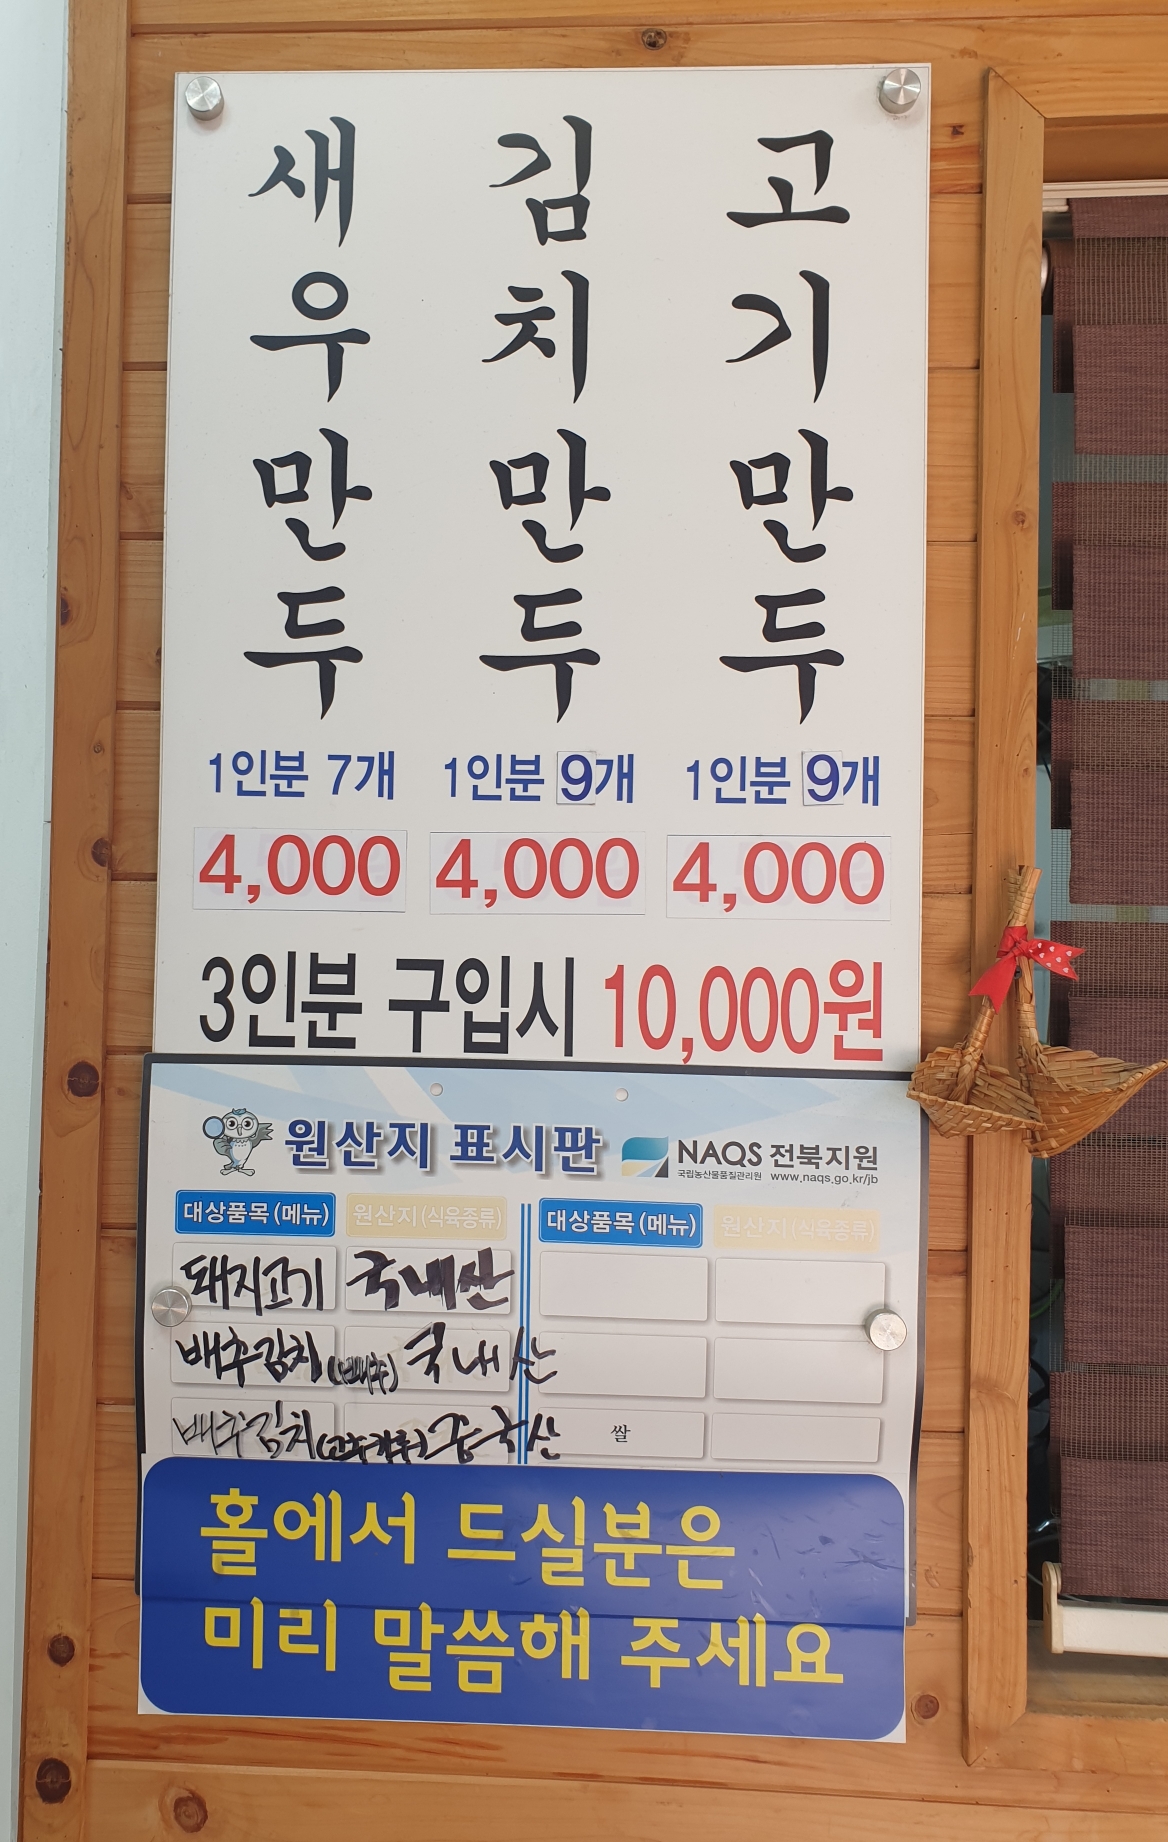 새우만두
김치만두
고기만두
1인분 7개 1인분 9개 1인분 9개
4,000 4,000 4,000
3인분 구입시 10,000원
원산지 표시판
NAQS 전북지원
국립농산물품질관리원 www.naqs.go.kr/jb
대상품목(메뉴) 원산지(식육종류) 대상품목(메뉴) 원산지(식육종류)
돼지고기 국내산
배추김치(배추) 국내산
배추김치(고추가루) 중국산 쌀
홀에서 드실분은
미리 말씀해 주세요